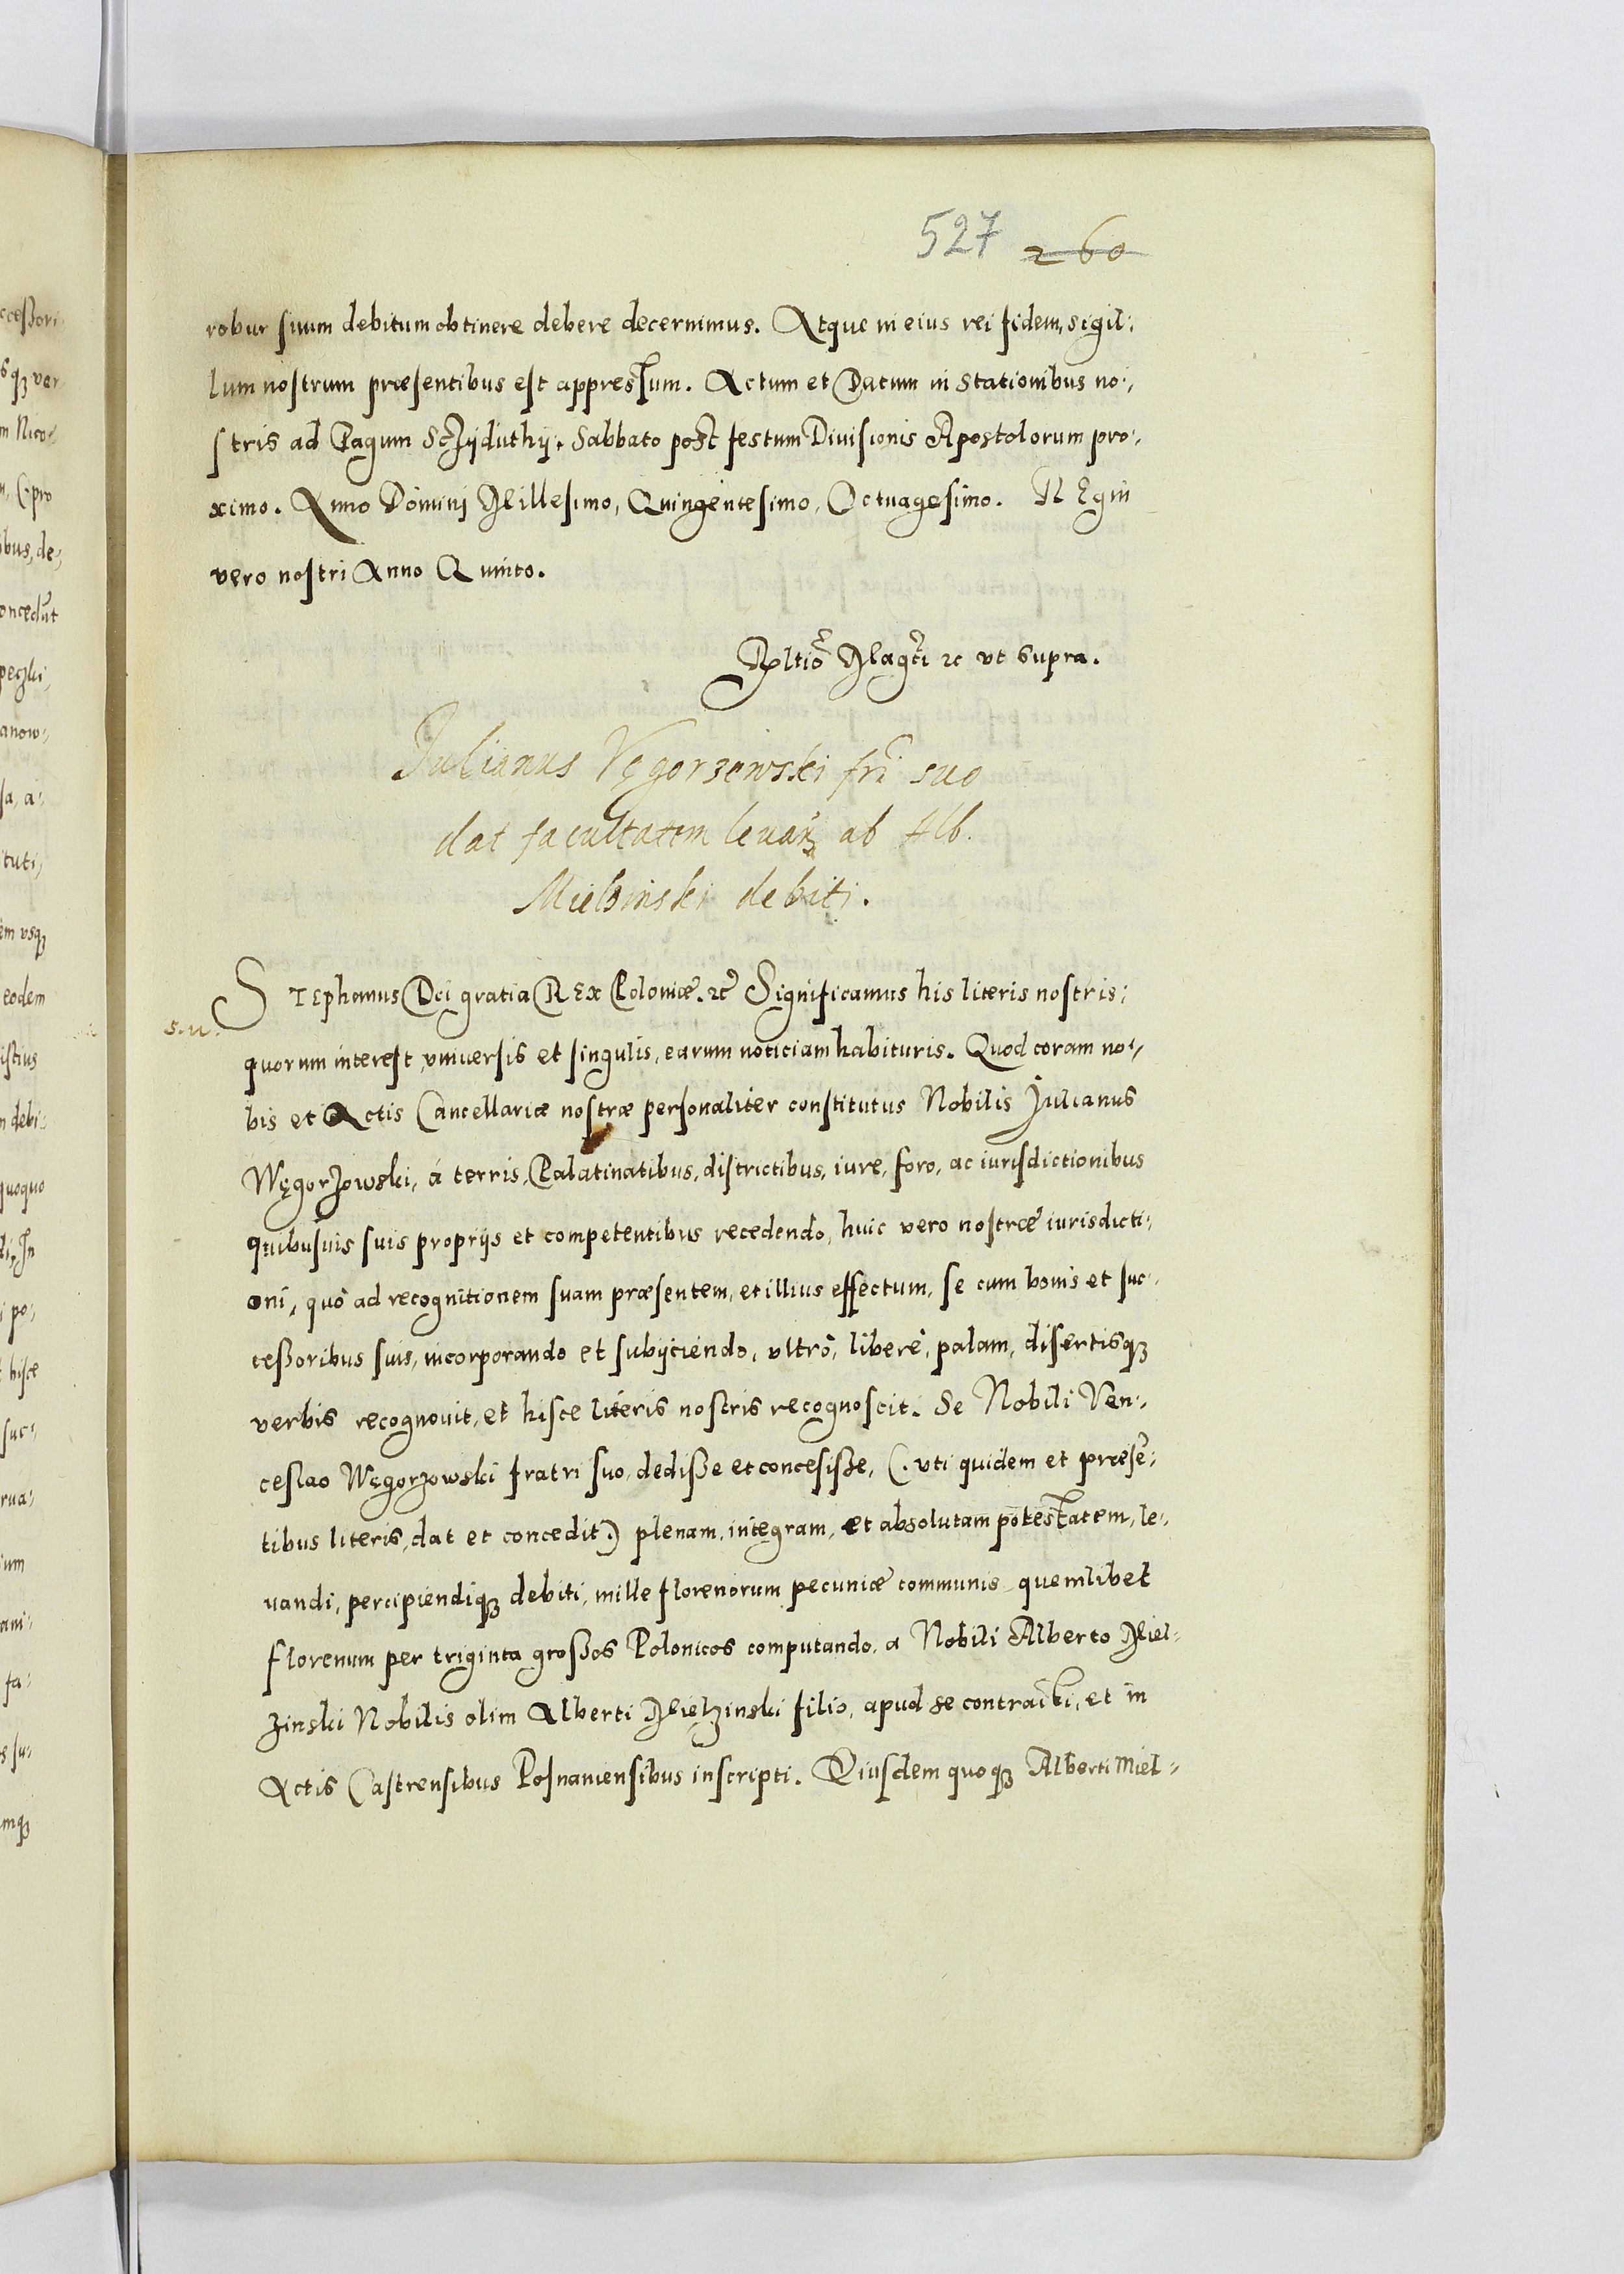 527 260
robur suum debitum obtinere debere decernimus. Atque in eius rei fidem, sigil:
lum nostrum præsentibus est appressum. Actum et Datum in Stationibus no:
stris ad Pagum Sczÿduthÿ. Sabbato post festum Diuisionis Apostolorum pro:
ximo. Anno Domini Millesimo, Quingentesimo, Octuagesimo. REgni
vero nostri Anno Quinto.
Rltio Magci ꝛc vt supra.
Julianus Vęgorzewski fri suo
dat facultatem leuandi ab Alb.
Mielzinski debiti.
STEphanus Dei gratia REx Poloniæ. ꝛc Significamus his literis nostris:
s.u.
quorum interest, vniuersis et singulis, earum noticiam habituris. Quod coram no:
bis et Actis Cancellariæ nostræ personaliter constitutus Nobilis Julianus
Węgorzowski, á terris, Palatinatibus, districtibus, iure, foro, ac iurisdictionibus
quibusuis suis proprijs et competentibus recedendo, huic vero nostræ iurisdicti:
oni, quò ad recognitionem suam præsentem, et illius effectum, se cum bonis et suc:
ceßoribus suis, incorporando et subÿciendo, vltrò, liberè, palam, disertisqꝫ
verbis recognouit, et hisce literis nostris recognoscit. Se Nobili Ven:
ceslao Węgorzowski fratri suo, dediße et concesiße, (. vti quidem et præsē:
tibus literis, dat et concedit.) plenam, integram, et absolutam potestatem, le:
uandi, percipiendiqꝫ debiti, mille florenorum pecuniæ communis quemlibet
florenum per triginta großos Polonicos computando, a Nobili Alberto Miel:
zinski Nobilis olim Alberti Mielzinski filio, apud se contracti, et in
Actis Castrensibus Posnaniensibus inscripti. Eiusdem quoqꝫ Alberti Miel: